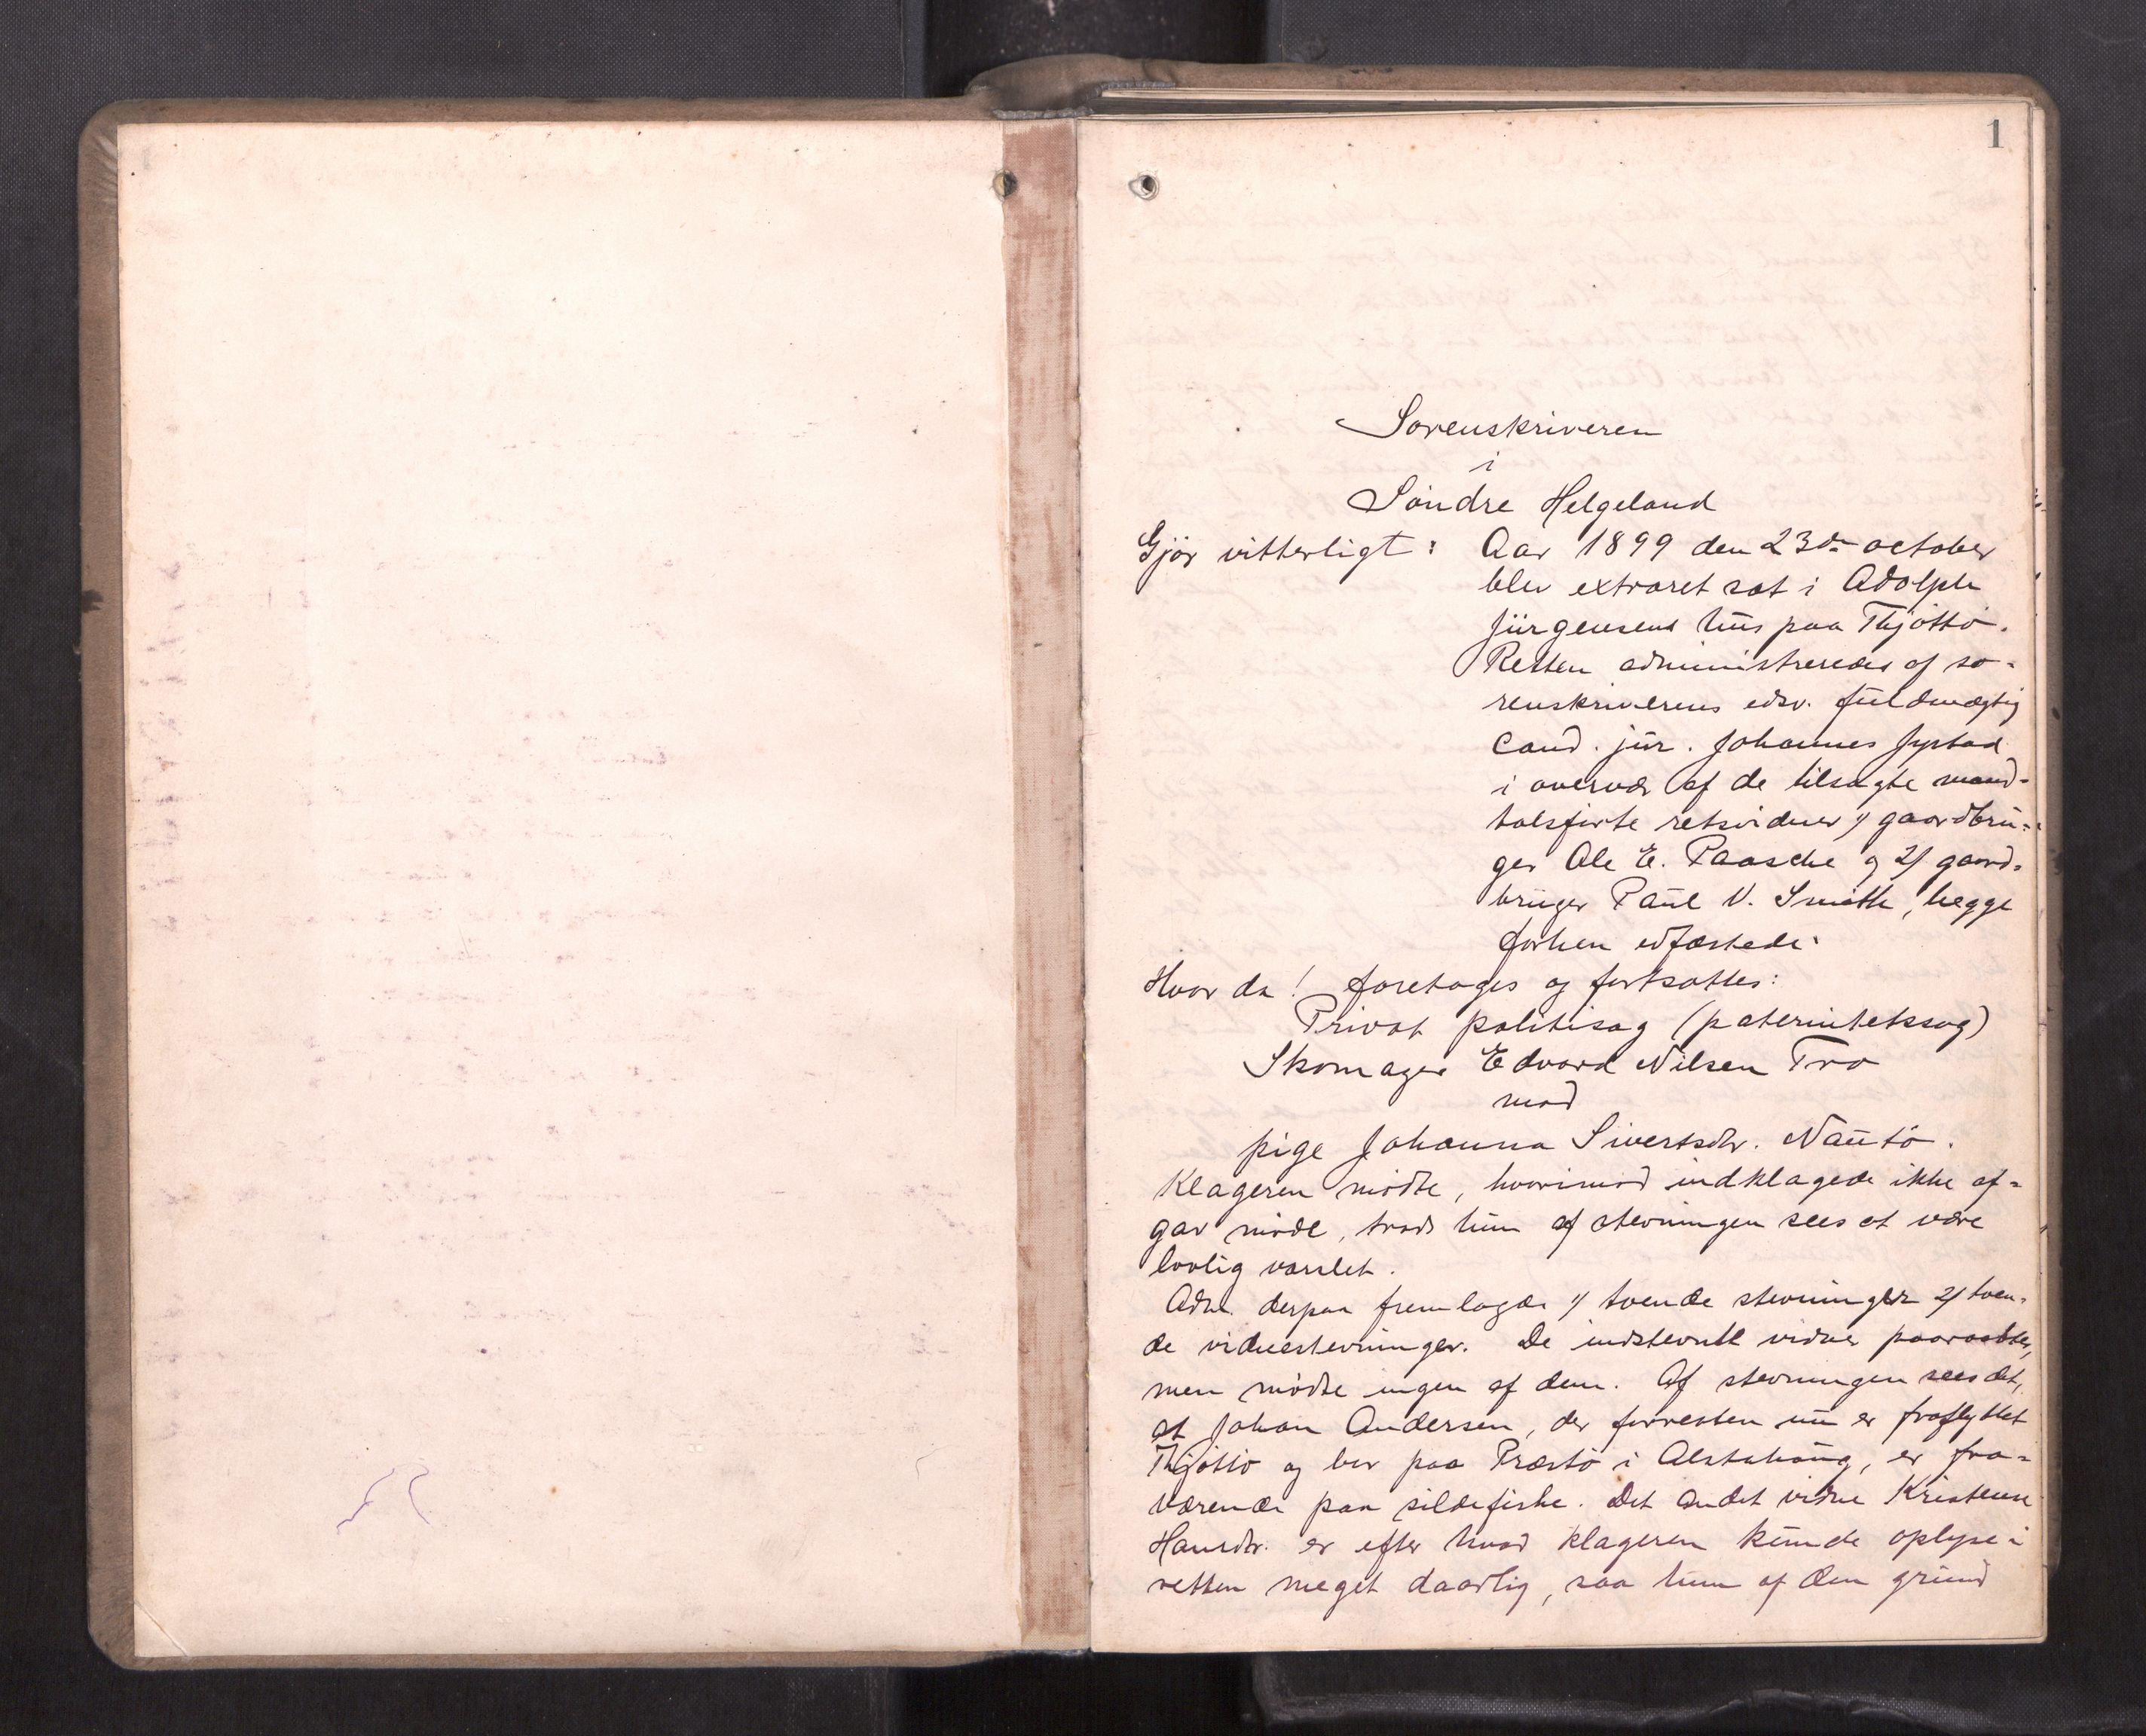 1
Sorenskriveren
i
Söndre Helgeland
Gjör vitterligt: Aar 1899 den 23de october
blev extraret sat i Adolph
Jürgensens hus paa Thjöttö.
Retten administreredes af so-
renskriverens edsv. fuldmægtig
cand. jur. Johannes
i overvær af de tilsagte mand-
talsförte retsvidner 1/ gaardbru-
ger Ole E. Paasche og 2/ gaard-
bruger Paul V. Smith, begge
forhen edfæstede.
Hvor da! foretoges og fortsattes:
Privat politisag (paternitetssag)
Skomager Edvard Nilsen Tro
mod
pige Johanna Sivertsdtr. Nautö.
Klageren mödte, hvorimod indklagede ikke af-
gav möde, trods hun af stevningen sees at være
lovlig varslet.
Adm. derpaa fremlagde 1/ tvende stevninger 2/ tven-
de vidnestevninger. De indstevnte vidner paaraabtes,
men mödte ingen af dem. Af stevningen sees det,
at Johan Andersen, der forresten nu er fraflyttet
Thjöttö og bor paa Præstö i Alstahaug, er fra-
værende paa sildefiske. Det andet vidne Kristense
Hansdtr. er efter hvad klageren kunde oplyse i
retten meget daarlig, saa hun af den grund